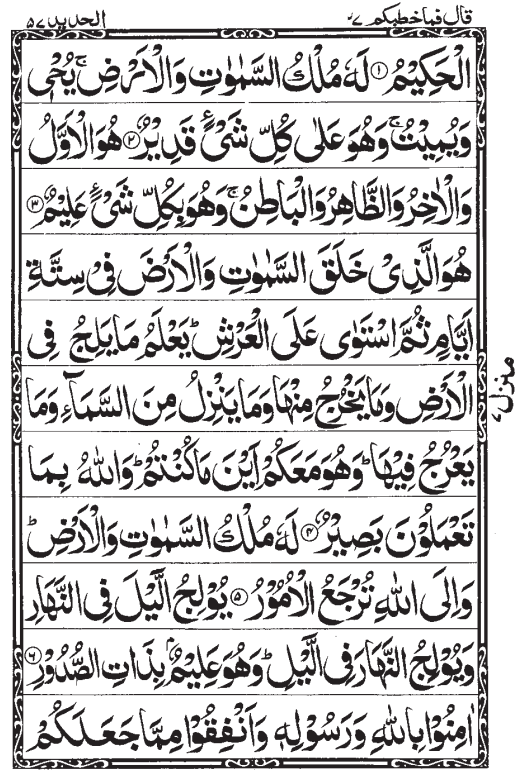 قال فما خطبكم ۲۷ الحديد ۵۷
الْحَكِيْمُ ① لَهٗ مُلْكُ السَّمٰوٰتِ وَالْاَرْضِ ۚ يُحْيٖ
وَيُمِيْتُ ۚ وَهُوَ عَلٰى كُلِّ شَيْءٍ قَدِيْرٌ ② هُوَ الْاَوَّلُ
وَالْاٰخِرُ وَالظَّاهِرُ وَالْبَاطِنُ ۚ وَهُوَ بِكُلِّ شَيْءٍ عَلِيْمٌ ③
هُوَ الَّذِيْ خَلَقَ السَّمٰوٰتِ وَالْاَرْضَ فِيْ سِتَّةِ
اَيَّامٍ ثُمَّ اسْتَوٰى عَلَى الْعَرْشِ ؕ يَعْلَمُ مَا يَلِجُ فِى
الْاَرْضِ وَمَا يَخْرُجُ مِنْهَا وَمَا يَنْزِلُ مِنَ السَّمَآءِ وَمَا
يَعْرُجُ فِيْهَا ؕ وَهُوَ مَعَكُمْ اَيْنَ مَا كُنْتُمْ ؕ وَاللّٰهُ بِمَا
تَعْمَلُوْنَ بَصِيْرٌ ④ لَهٗ مُلْكُ السَّمٰوٰتِ وَالْاَرْضِ ؕ
وَاِلَى اللّٰهِ تُرْجَعُ الْاُمُوْرُ ⑤ يُوْلِجُ الَّيْلَ فِى النَّهَارِ
وَيُوْلِجُ النَّهَارَ فِى الَّيْلِ ؕ وَهُوَ عَلِيْمٌۢ بِذَاتِ الصُّدُوْرِ ⑥
اٰمِنُوْا بِاللّٰهِ وَرَسُوْلِهٖ وَاَنْفِقُوْا مِمَّا جَعَلَكُمْ
منزل ۷